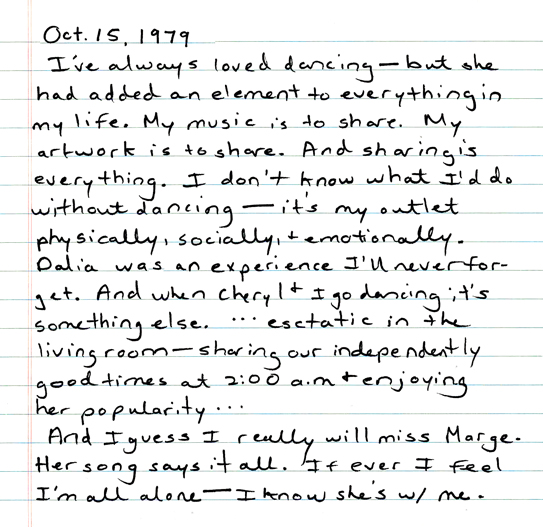 Oct. 15, 1979
I've always loved dancing — but she
had added an element to everything in
my life. My music is to share. My
artwork is to share. And sharing is
everything. I don't know what I'd do
without dancing — it's my outlet
physically, socially, + emotionally.
Dalia was an experience I'll never for-
get. And when Cheryl + I go dancing it's
something else. ... esctatic in the
living room — sharing our independently
good times at 2:00 a.m + enjoying
her popularity ...
And I guess I really will miss Marge.
Her song says it all. If ever I feel
I'm all alone — I know she's w/ me.